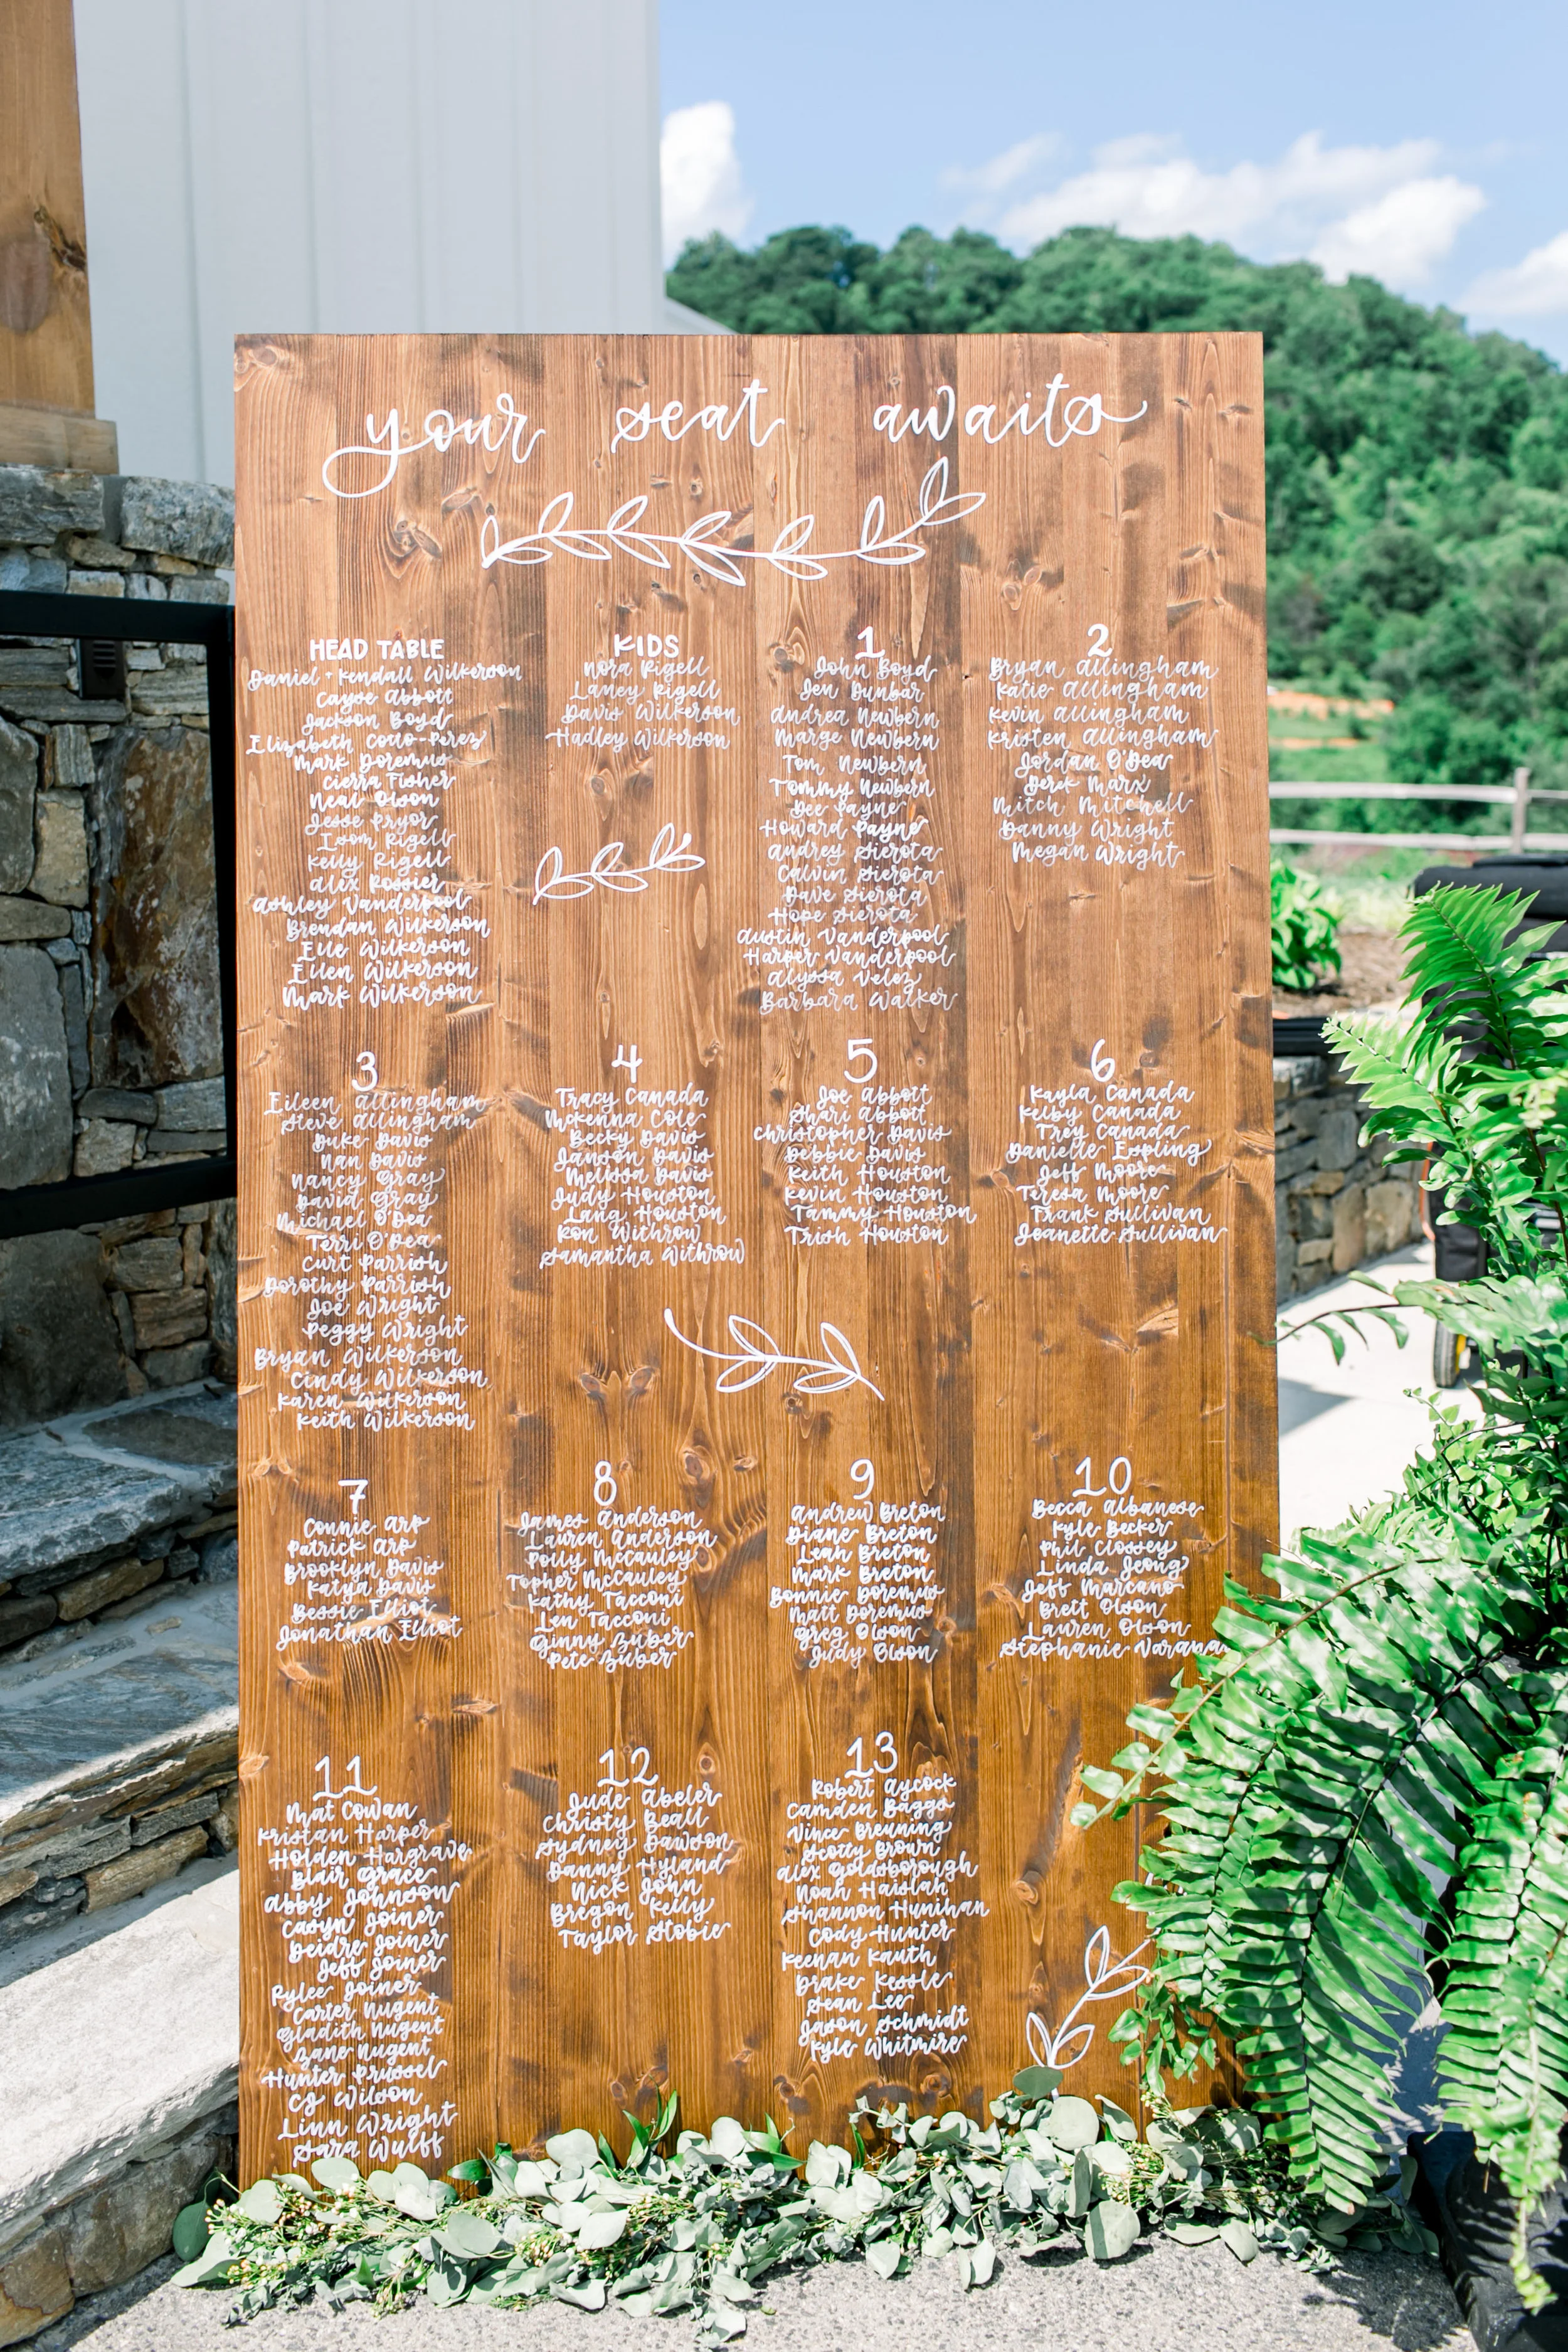 your seat awaits
HEAD TABLE
Daniel + Kendall Wilkerson
Cayse Abbott
Jackson Boyd
Elizabeth Cotto-Perez
Mark Doremus
Cierra Fisher
Neal Olson
Jesse Pryor
Isom Rigell
Kelly Rigell
Alex Rossier
Ashley Vanderpool
Brendan Wilkerson
Elle Wilkerson
Ellen Wilkerson
Mark Wilkerson
KIDS
Nora Rigell
Laney Rigell
Davis Wilkerson
Hadley Wilkerson
1
John Boyd
Jen Dunbar
Andrea Newbern
Marge Newbern
Tom Newbern
Tommy Newbern
Dee Payne
Howard Payne
Audrey Sierota
Calvin Sierota
Dave Sierota
Hope Sierota
Austin Vanderpool
Harper Vanderpool
Alyssa Velez
Barbara Walker
2
Bryan Allingham
Katie Allingham
Kevin Allingham
Kristen Allingham
Jordan O'Dea
Derek Marx
Mitch Mitchell
Danny Wright
Megan Wright
3
Eileen Allingham
Steve Allingham
Duke Davis
Nan Davis
Nancy Gray
David Gray
Michael O'Dea
Terri O'Dea
Curt Parrish
Dorothy Parrish
Joe Wright
Peggy Wright
Bryan Wilkerson
Cindy Wilkerson
Karen Wilkerson
Keith Wilkerson
4
Tracy Canada
McKenna Cole
Becky Davis
Janson Davis
Melissa Davis
Judy Houston
Lang Houston
Ron Withrow
Samantha Withrow
5
Joe Abbott
Shari Abbott
Christopher Davis
Debbie Davis
Keith Houston
Kevin Houston
Tammy Houston
Trish Houston
6
Kayla Canada
Kelby Canada
Trey Canada
Danielle Espling
Jeff Moore
Teresa Moore
Frank Sullivan
Jeanette Sullivan
7
Connie Arp
Patrick Arp
Brooklyn Davis
Katya Davis
Bessie Elliot
Jonathan Elliot
8
James Anderson
Lauren Anderson
Polly McCauley
Topher McCauley
Kathy Tacconi
Len Tacconi
Ginny Zuber
Pete Zuber
9
Andrew Breton
Diane Breton
Leah Breton
Mark Breton
Bonnie Doremus
Matt Doremus
Greg Olson
Judy Olson
10
Becca Albanese
Kyle Becker
Phil Clossey
Linda Jeong
Jeff Marcano
Brett Olson
Lauren Olson
Stephanie
11
Mat Cowan
Kristan Harper
Holden Hargrave
Blair Grace
Abby Johnson
Casyn Joiner
Deidre Joiner
Jeff Joiner
Rylee Joiner
Carter Nugent
Gladith Nugent
Zane Nugent
Hunter Prussel
CJ Wilson
Linn Wright
Sara Wulff
12
Jude Abeler
Christy Beall
Sydney Dawson
Danny Hyland
Nick John
Bregon Kelly
Taylor Stobie
13
Robert Aycock
Camden Baggs
Vince Breuning
Scotty Brown
Alex Goldsborough
Noah Haislah
Shannon Hunihan
Cody Hunter
Keenan Kauth
Drake Kessle
Sean Lee
Jason Schmidt
Kyle Whitmire